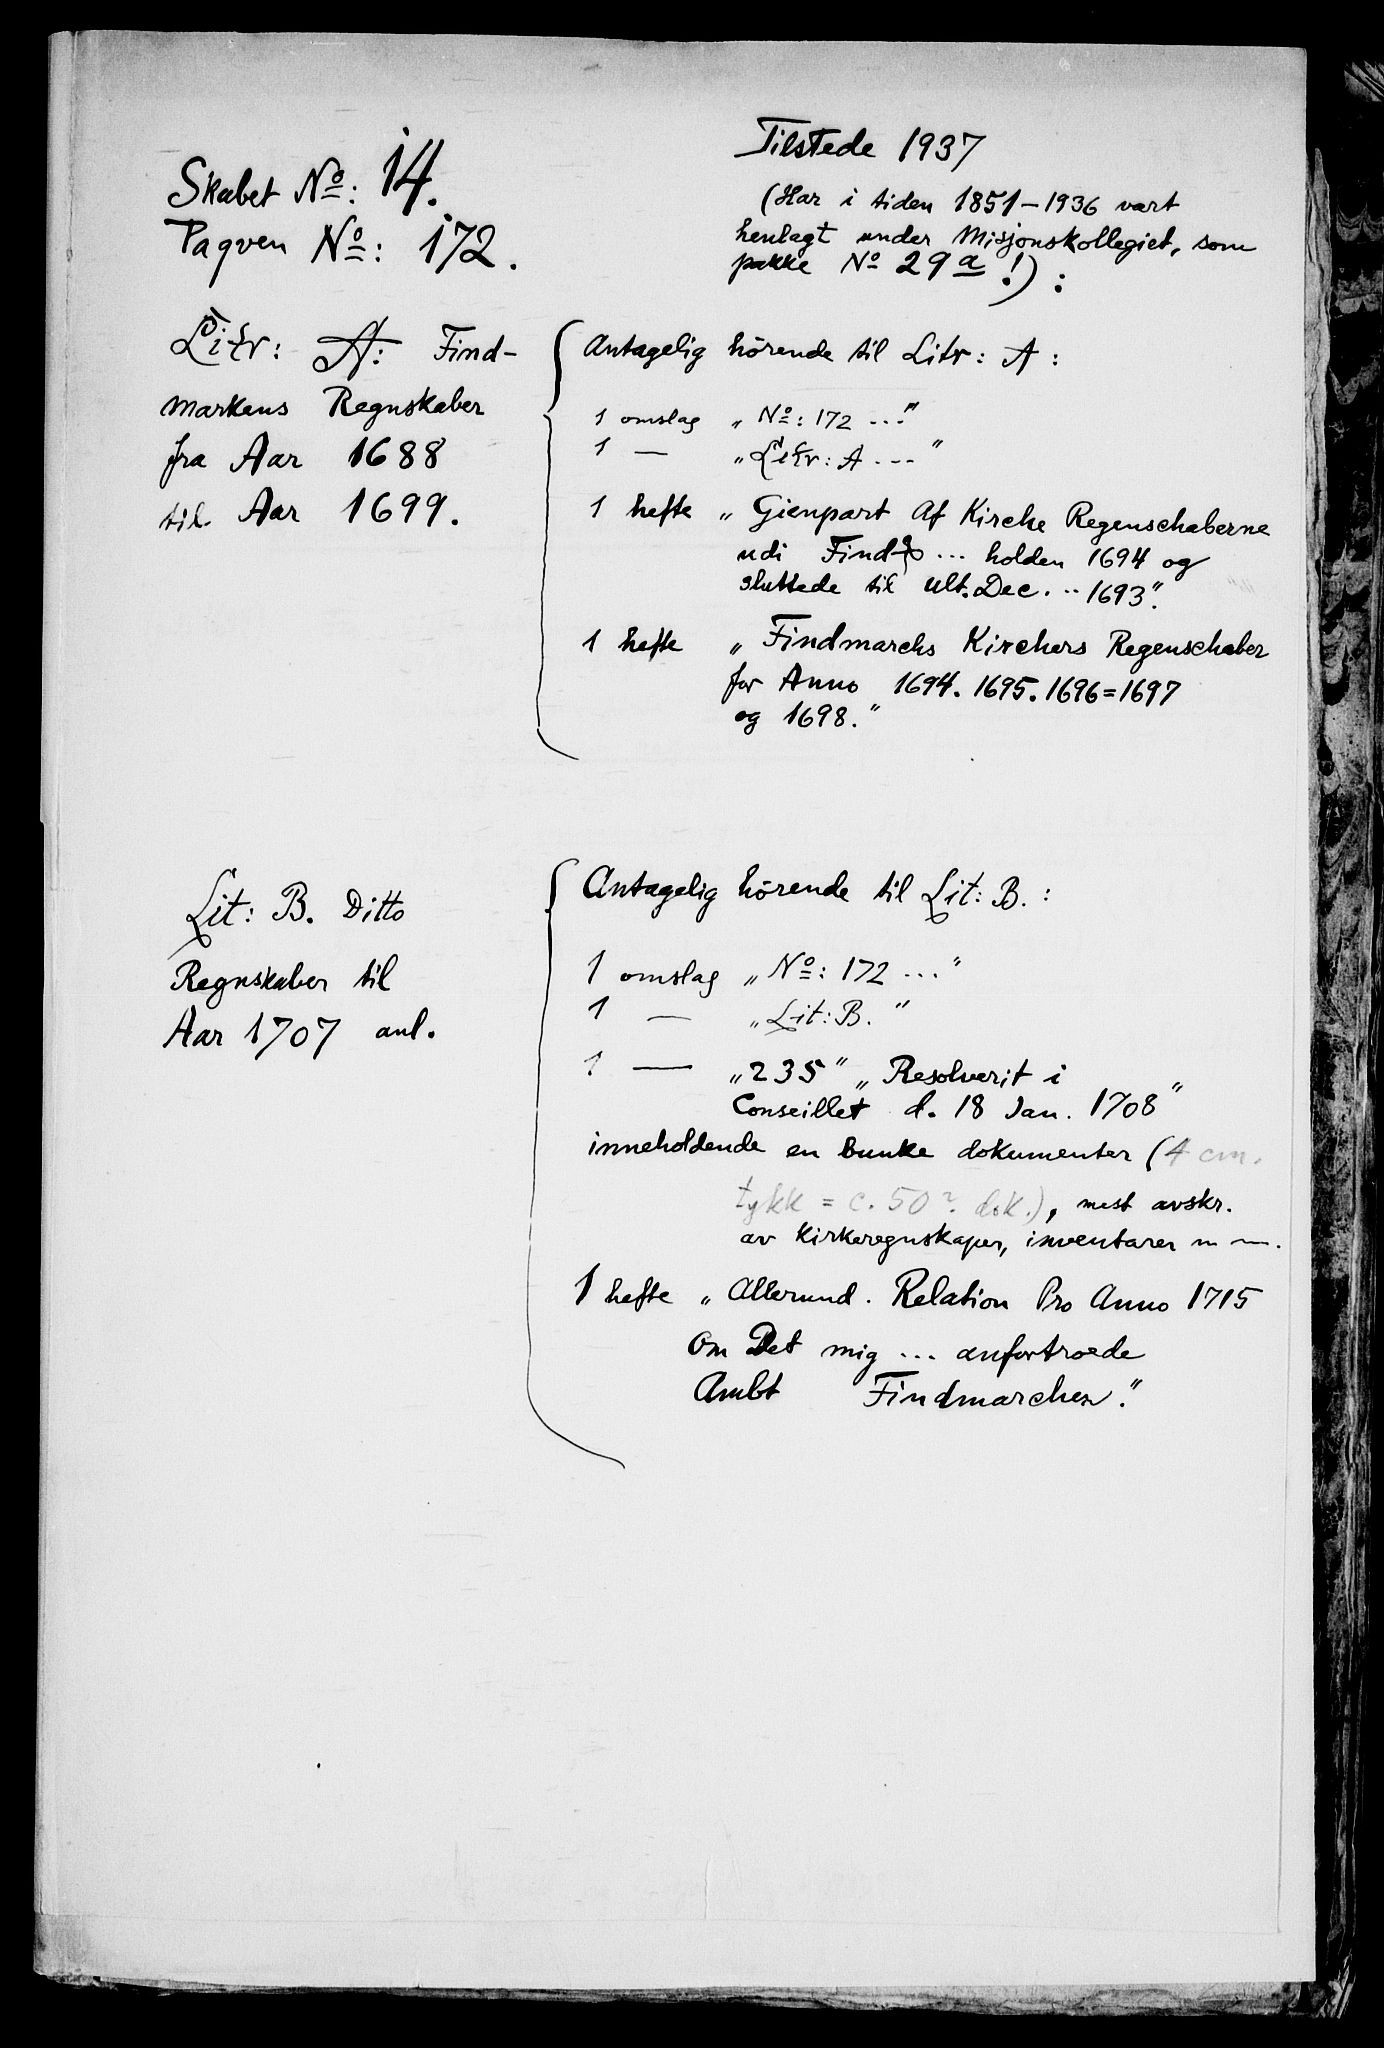 Skabet No: 14.
Paqven No: 172.
Tilstede 1937
(Har i tiden 1851-1936 vært
henlagt under Misjonskollegiet, som
pakke No 29 a!):
Litr: A: Find-
markens Regnskaber
fra Aar 1688
til Aar 1699.
Antagelig hørende til Litr: A:
1 omslag „No: 172 ..."
1 — „Litr: A ..."
1 hefte „Gienpart Af Kirche Regenschaberne
udi Find ... holden 1694 og
sluttede til Ult. Dec. .. 1693".
1 hefte „Findmarchs Kirchers Regenschaber
for Anno 1694. 1695. 1696=1697
og 1698."
Lit: B. Ditto
Regnskaber til
Aar 1707 anl.
Antagelig hørende til Lit: B.:
1 omslag „No: 172 ..."
1 — „Lit: B."
1 — „235" „Resolverit i
Conseillet d. 18 Jan. 1708"
inneholdende en bunke dokumenter (4 cm.
tykk = c. 50? dok.), mest avskr.
av kirkeregnskaper, inventarer m m.
1 hefte „Allerund. Relation Pro Anno 1715
Om Det mig ... anfortroede
Ambt Findmarchen."